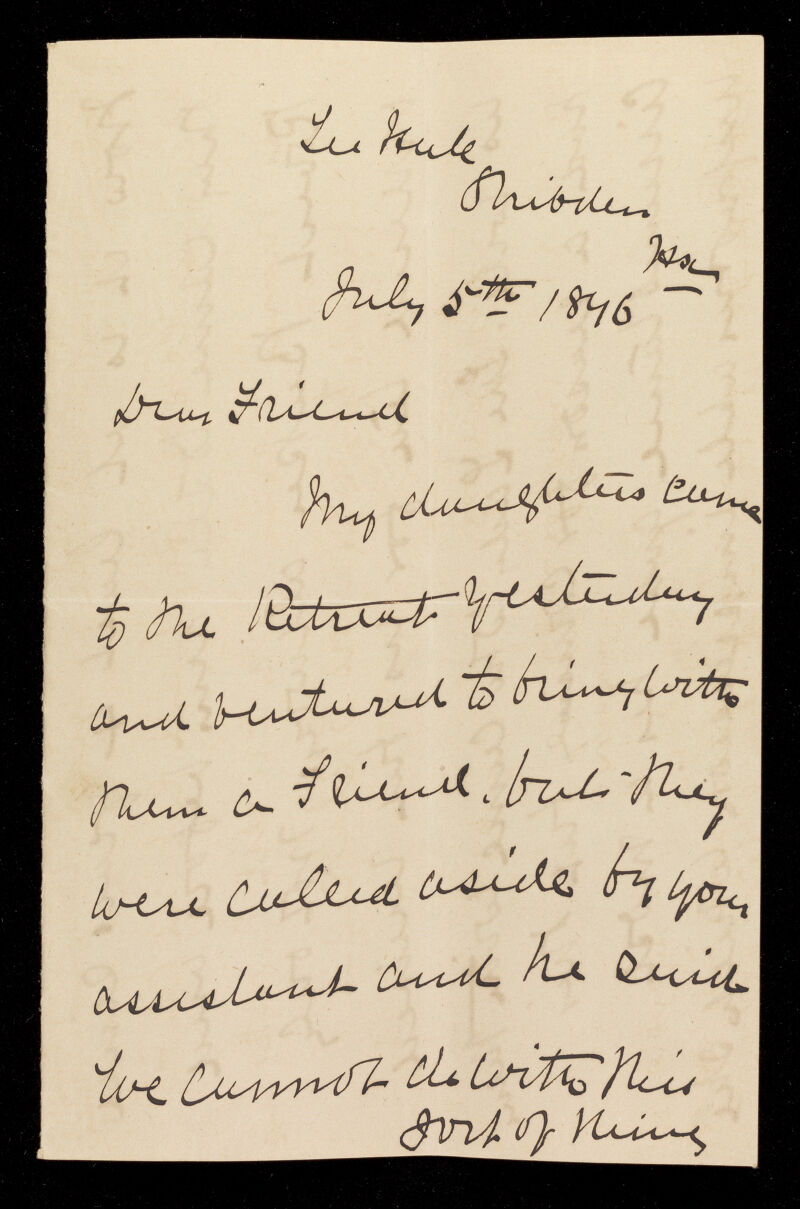 Shibden
Hx
July 5th 1896
Dear Friend
My daughters came
to the Retreat yesterday
and ventured to bring with
them a Friend, but they
were called aside by your
assistant and he said
We cannot do with this
sort of thing